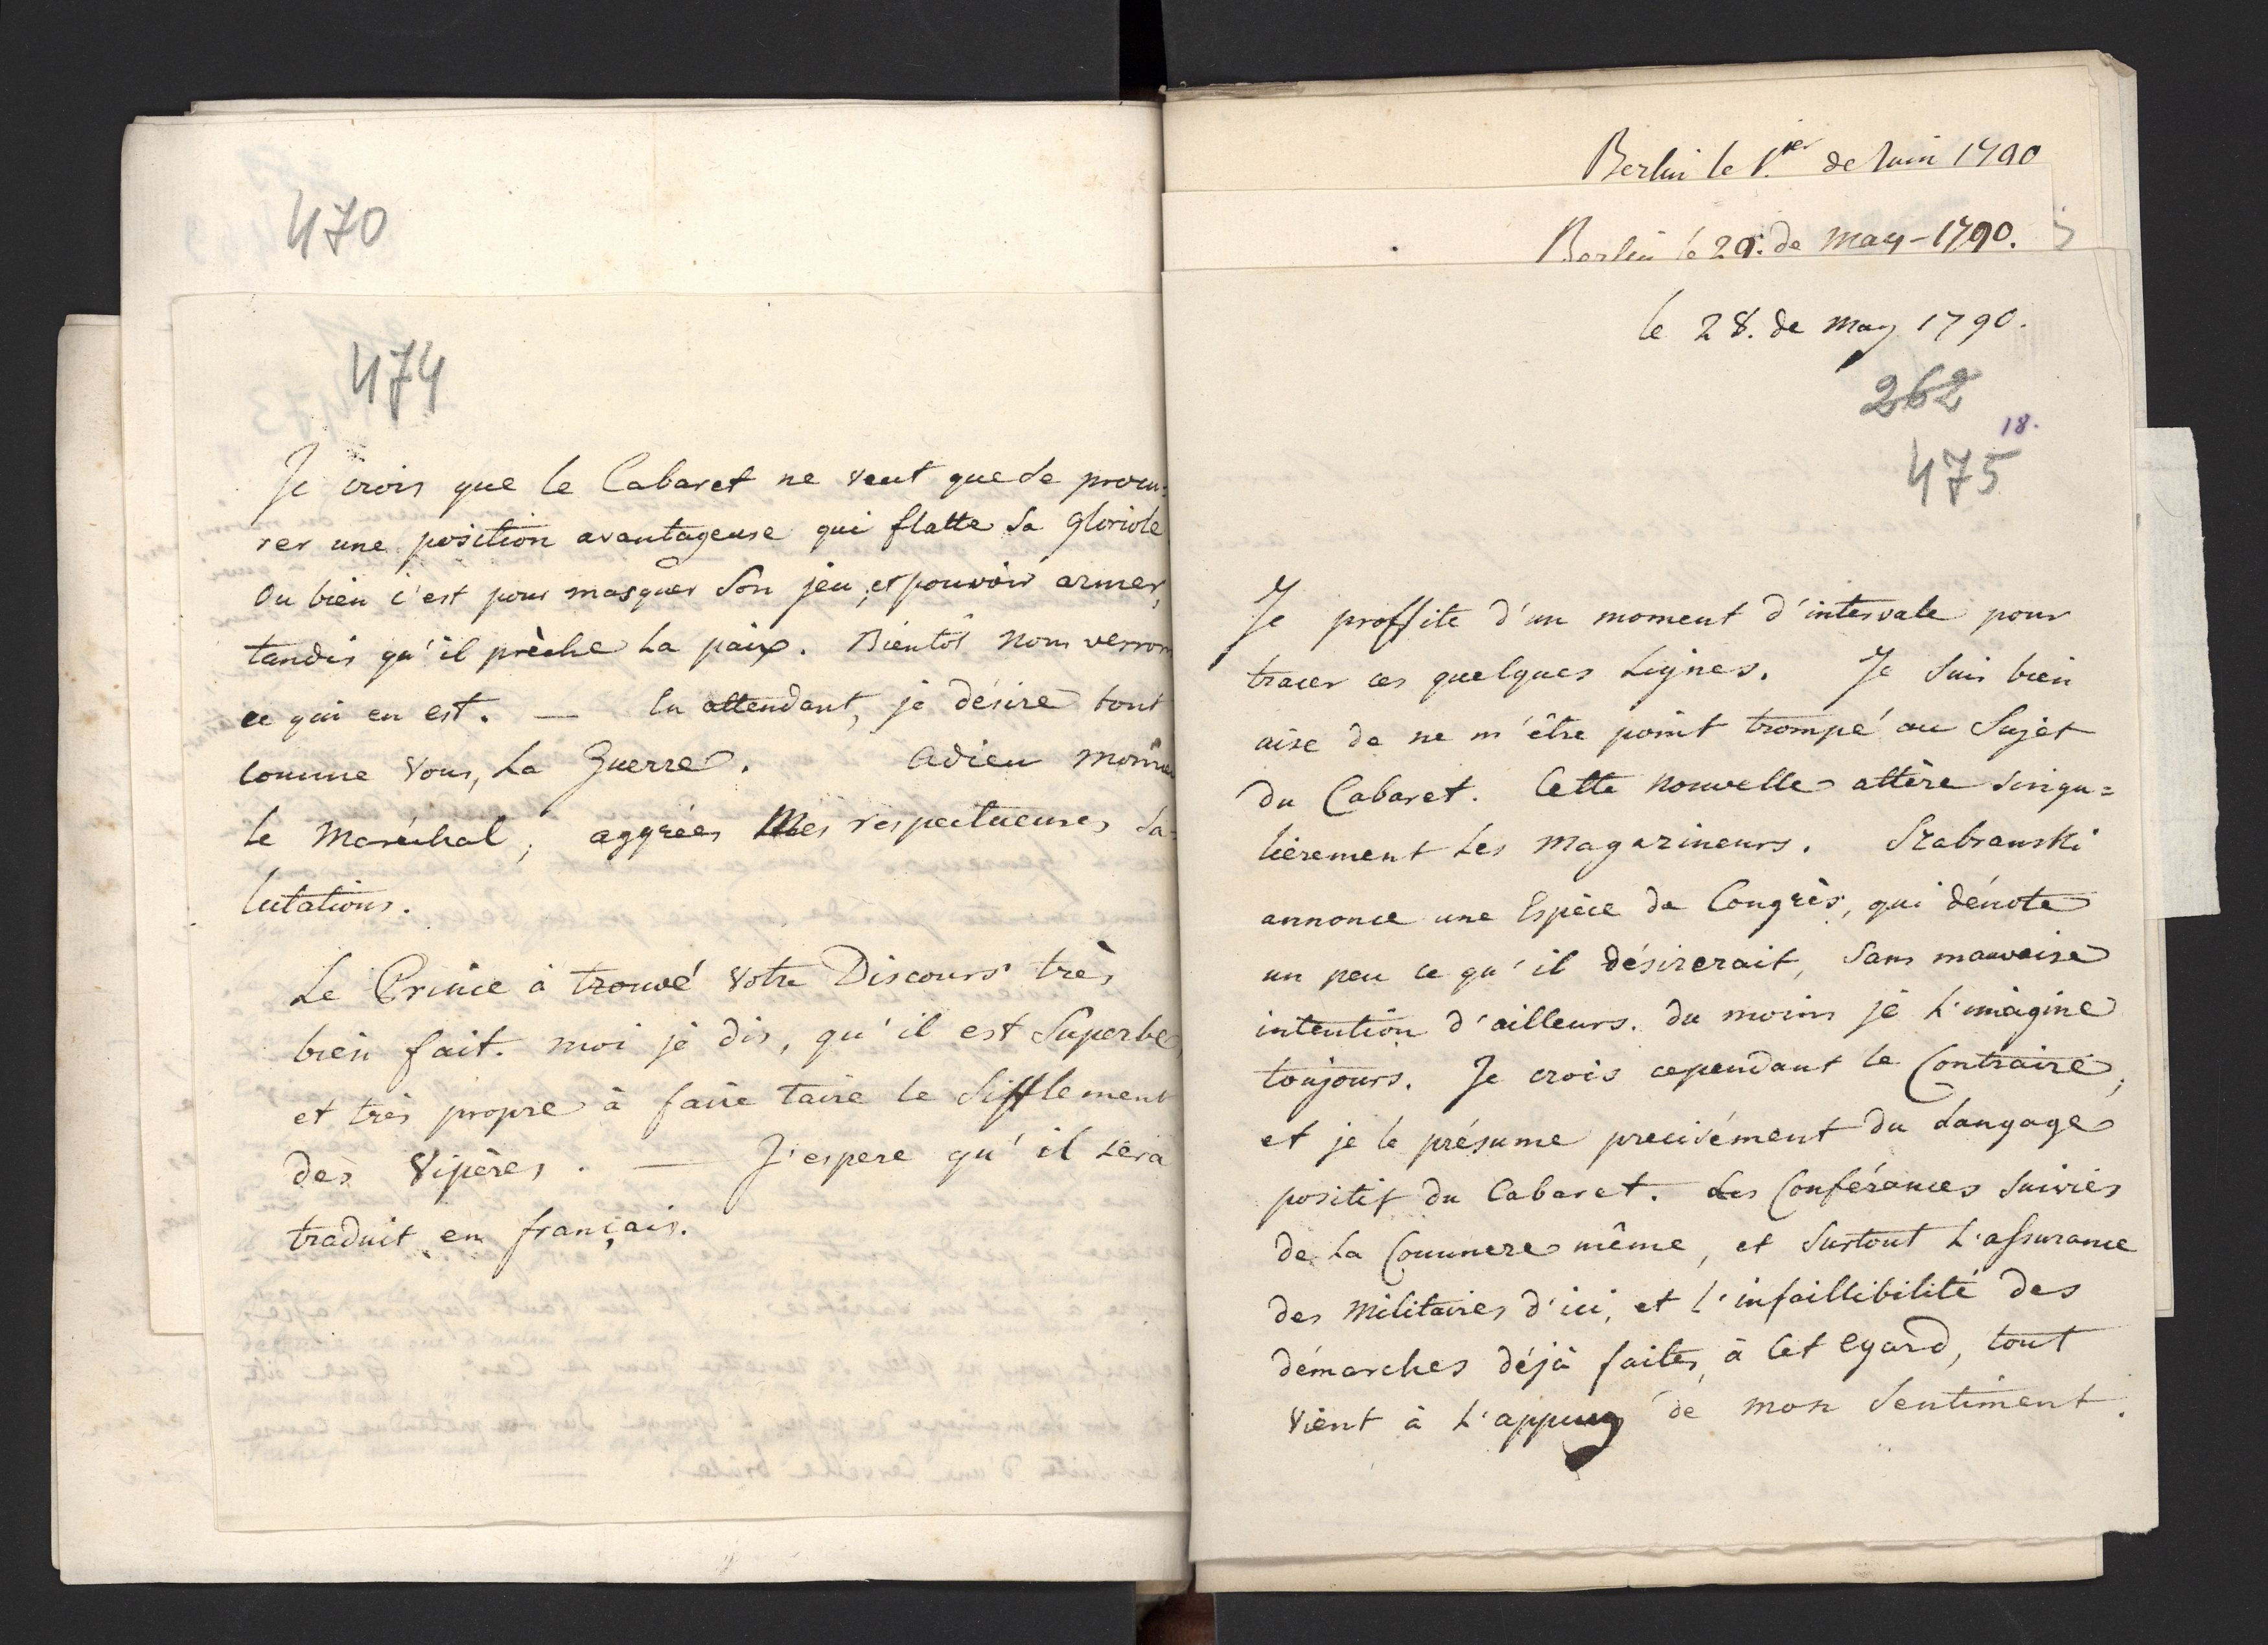 470
474
Je crois que le Cabaret ne veut que se procu=
rer une position avantageuse qui flatte sa gloriole
Ou bien c'est pour masquer son jeu, et pouvoir armer,
tandis qu'il prèche la paix. Bientôt nous verrons
ce qui en est. — En attendant, je désire tout
comme vous, la Guerre. Adieu
le Maréchal, aggréés Mes respectueuses sa=
lutations.
Le Prince à trouvé votre Discours très
bien fait. moi je dis, qu'il est Superbe,
et très propre à faire taire le Sifflement
des Vipères. — J'espere qu'il sera
traduit en français.
Berlin le 1.ier de Juin 1790
Berlin le 29. de May - 1790.
le 28. de May 1790.
262
18.
475
Je proffite d'un moment d'intervale pour
tracer ces quelques lignes. Je suis bien
aise de ne m'être point trompé au Sujet
du Cabaret. Cette nouvelle attère singu=
lièrement les Magazineurs. Szabranski
annonce une Espèce de Congrès, qui dénote
un peu ce qu'il désirerait, sans mauvaise
intention d'ailleurs. du moins je l'imagine
toujours. Je crois cependant le Contraire,
et je le présume precisément du Langage
positif du Cabaret. Les Conférances suivies
de la Commere même, et surtout l'assurance
des Militaires d'ici, et l'infaillibilité des
démarches déjà faites, à cet egard, tout
vient à l'appuy de mon Sentiment.